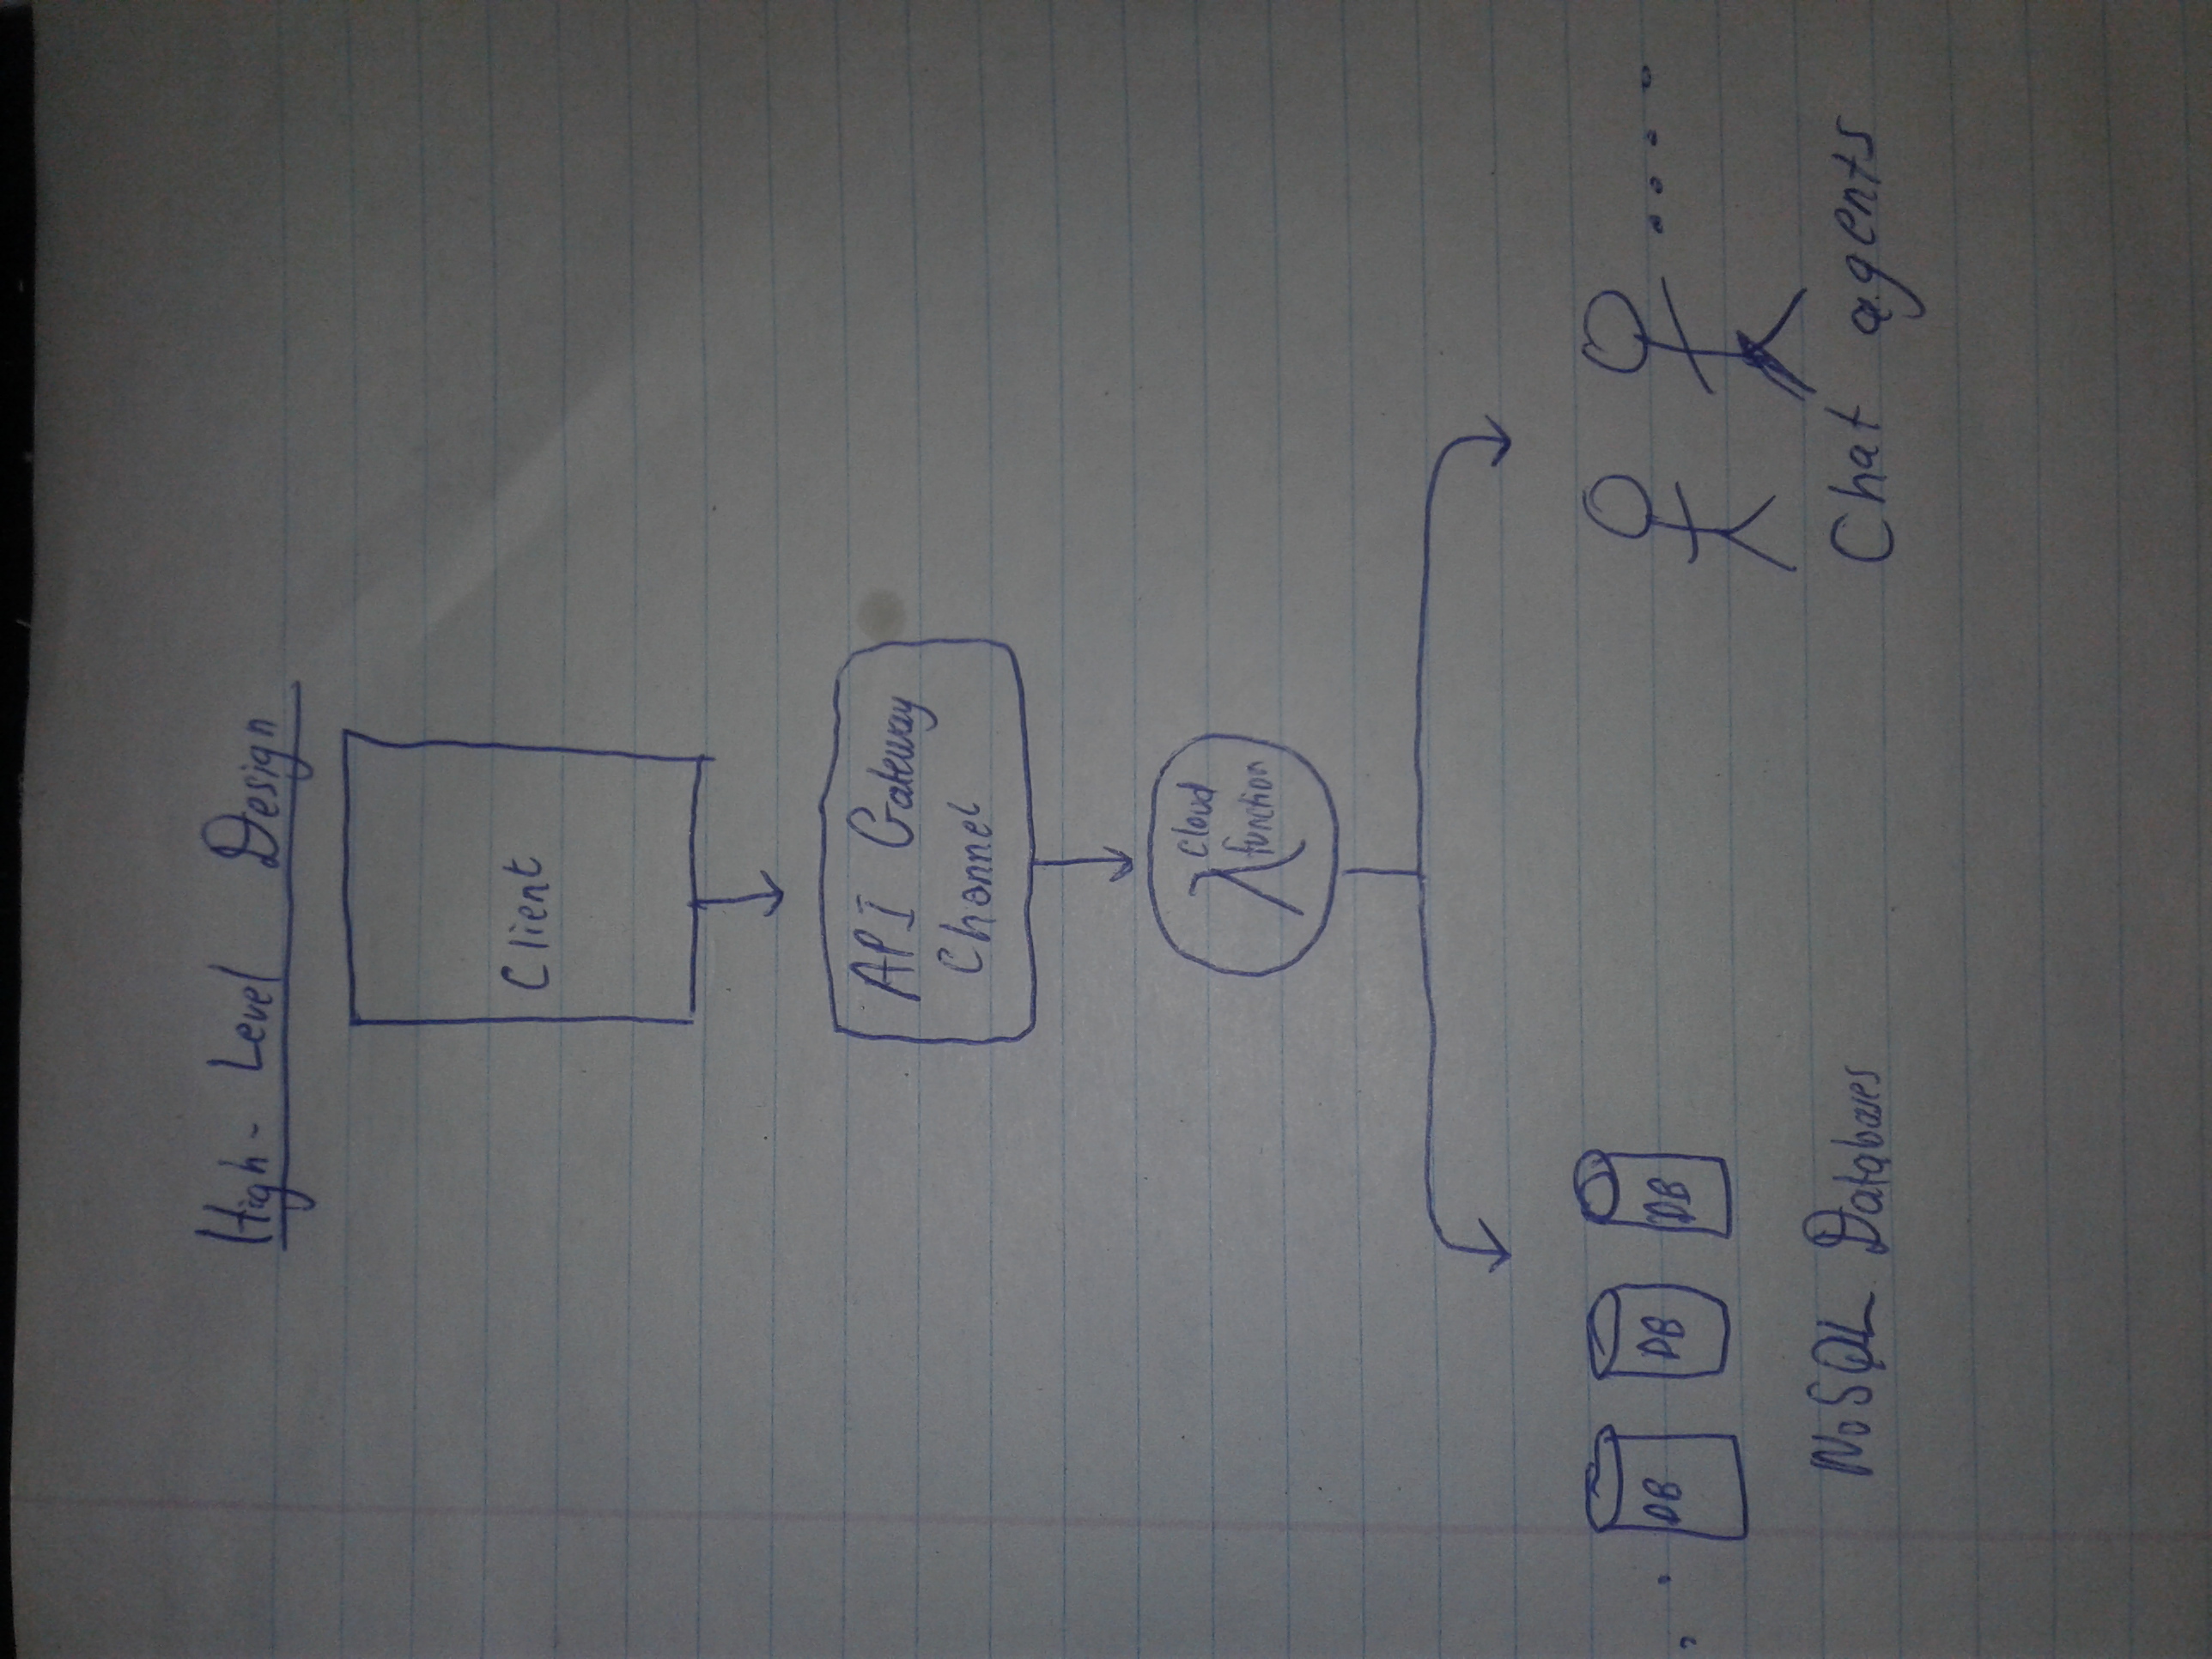 High-Level Design
Client
API Gateway
Channel
λ cloud
function
DB DB DB
NoSQL Databases
Chat agents